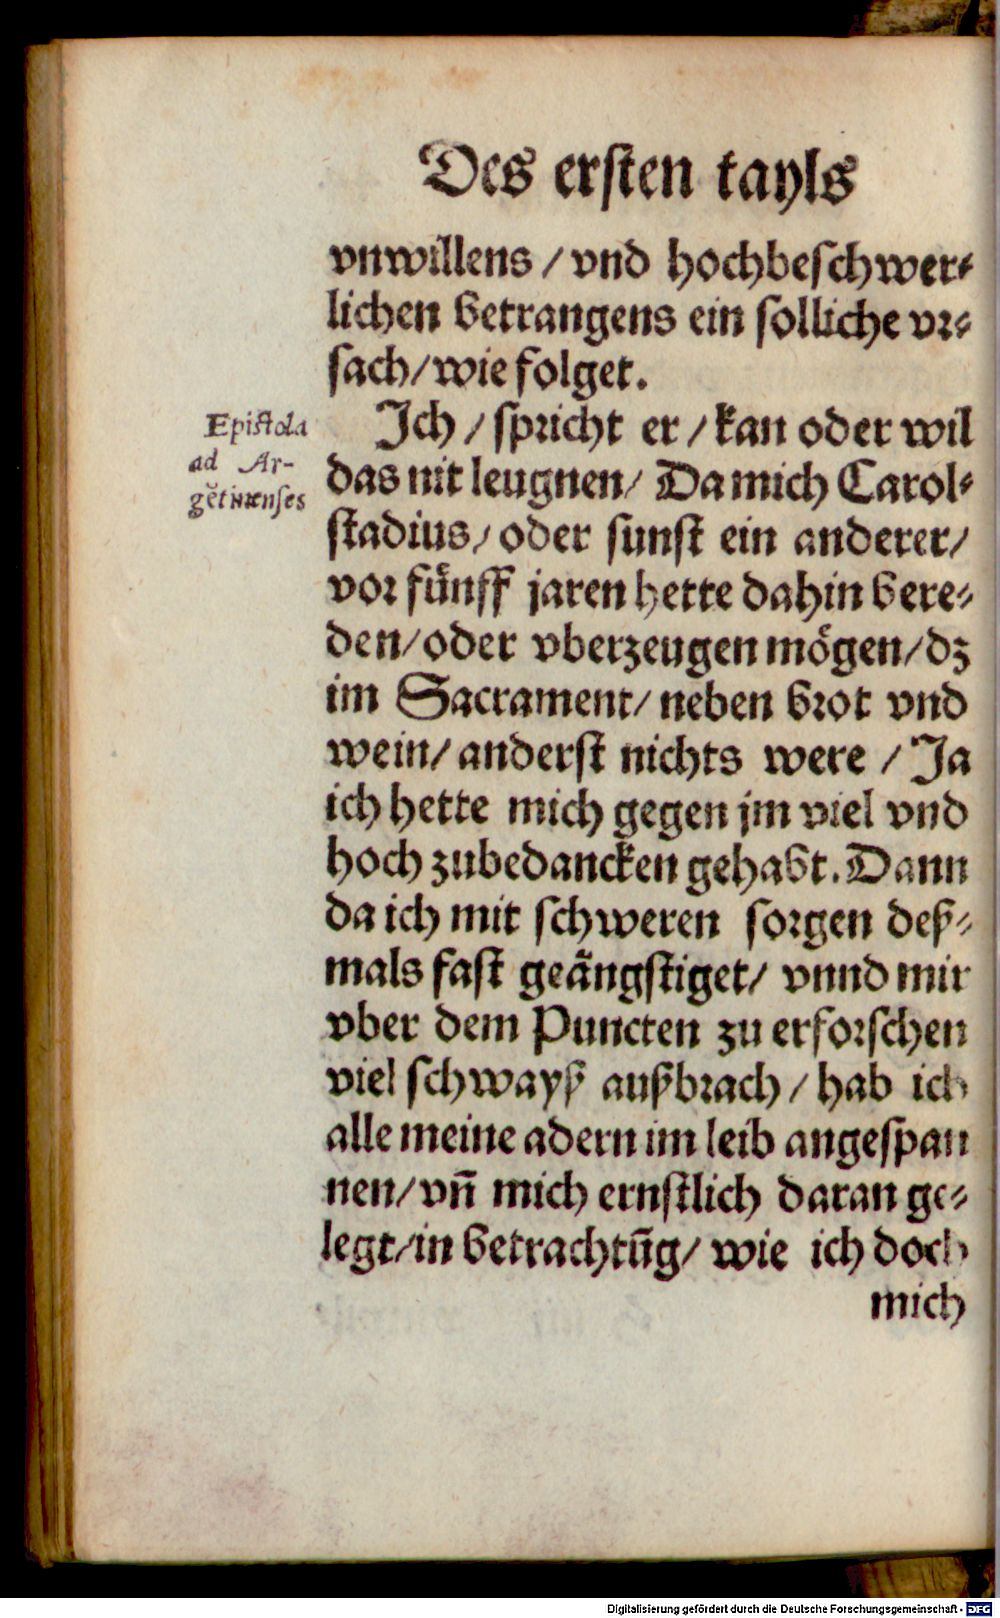 Des ersten tayls
vnwillens / vnd hochbeschwer⸗
lichen betrangens ein solliche vr⸗
sach/ wie folget.
Epistola
ad Ar-
gẽtinenses
Jch / spricht er / kan oder wil
das nit leugnen/ Da mich Carol⸗
stadius/ oder sunst ein anderer/
vor fünff jaren hette dahin bere⸗
den/ oder vberzeugen mögen/ dz
im Sacrament/ neben brot vnd
wein/ anderst nichts were / Ja
ich hette mich gegen jm viel vnd
hoch zubedancken gehabt. Dann
da ich mit schweren sorgen deß⸗
mals fast geängstiget/ vnnd mir
vber dem Puncten zu erforschen
viel schwayß außbrach / hab ich
alle meine adern im leib angespan
nen/ vñ mich ernstlich daran ge⸗
legt/ in betrachtũg/ wie ich doch
mich
Digitalisierung gefördert durch die Deutsche Forschungsgemeinschaft - DFG